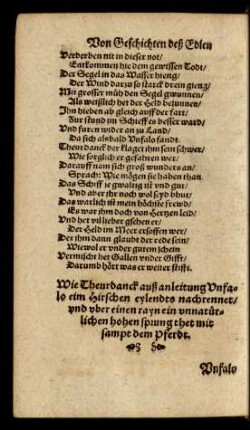 Von Geschichten deß Edlen
Verderben nit in dieser not/
Entkommen hie dem gewissen Todt/
Der Segel in das Wasser hieng/
Der Wind darzu so starck drein gieng/
Mit grosser müh den Segel gwunnen/
Als weißlich het der Held besunnen/
Ihn hieben ab gleich auff der fart/
Zur stund im Schieff es besser ward/
Vnd furen wider an zu Land/
Da sich als bald Vnfalo fandt.
Theurdanck der klaget ihm sein schwer/
Wie sorglich er gefahren wer/
Darauff nam sich groß wunders an/
Sprach: Wie mögen sie haben than
Das Schiff je gwaltig ist vnd gut/
Vnd aber jhr noch wol seyd bhut/
Das warlich ist mein höchste frewd/
Es war jhm doch von Hertzen leid/
Vnd het vil lieber gsehen er/
Der Held im Meer ersoffen wer/
Der ihm dann glaubt der rede sein/
Wiewol er vnder gutem schein
Vermischt het Gallen vnder Gifft/
Darumb hört was er weiter stifft.
Wie Theurdanck auß anleitung Vnfa-
lo eim Hirschen eylendts nachrennet/
vnd vber einen rayn ein vnnatür-
lichen hohen sprung thet mit
sampt dem Pferdt.
Vnfalo